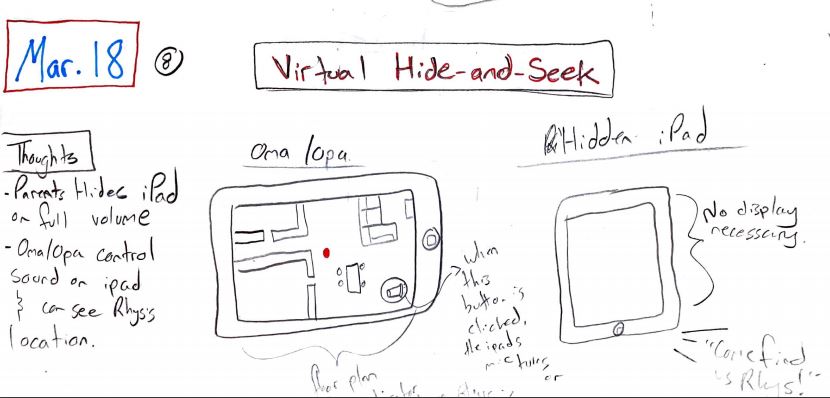 Mar. 18
8
Virtual Hide-and-Seek
Thoughts
- Parents Hides iPad
on full volume
- Oma/Opa control
sound on ipad
& can see Rhys's
location.
Oma/Opa
When
this
button is
clicked,
the ipads
or
floor plan
Hidden iPad
No display
necessary.
"Come find
us Rhys!"